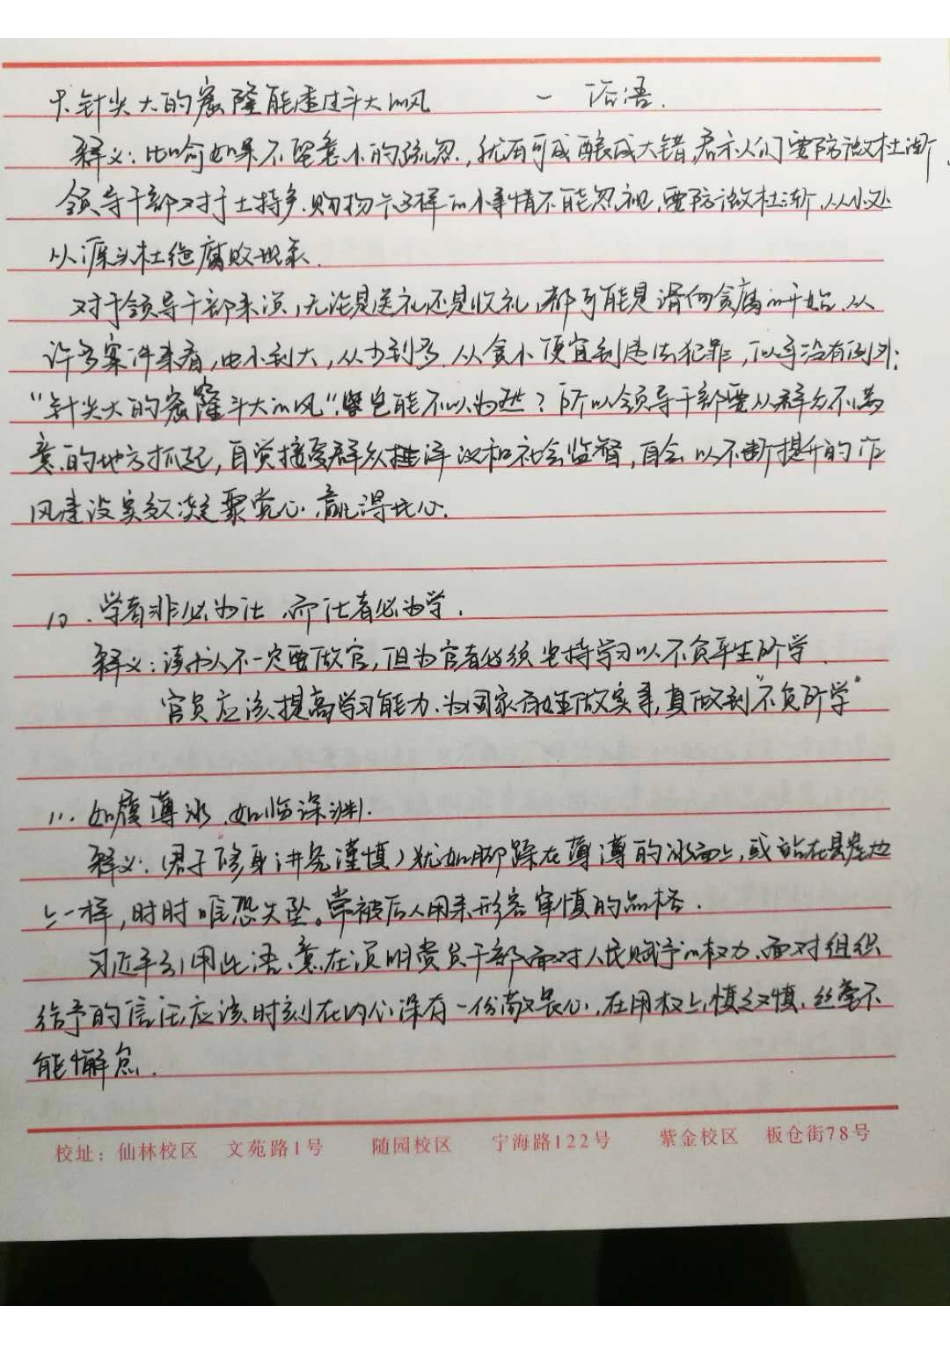 9.针尖大的窟窿能透过斗大的风 — 俗语.
释义:比喻如果不留意小的疏忽,就有可成酿成大错,启示人们要防微杜渐,
领导干部对于土特产.购物卡这样的小事情不能忽视,要防微杜渐,从小处
从源头杜绝腐败现象.
对于领导干部来演,无论是送礼还是收礼,都可能是滑向贪腐的开始.从
许多案件来看,由小到大,从少到多.从贪小便宜到违法犯罪,几乎没有例外:
“针尖大的窟窿斗大的风”岂能不以为然?所以领导干部要从群众不满
意的地方抓起,自觉接受群众评议和社会监督,自会以不断提升的作
风建设实效凝聚党心.赢得民心.
10.学者非必为仕,而仕者必为学.
释义:读书人不一定要做官,但为官者必须坚持学习以不负平生所学.
官员应该提高学习能力.为国家百姓做实事,真做到“不负所学”
11.如履薄冰,如临深渊.
释义:(君子修身讲究谨慎)犹如脚踩在薄薄的冰面上,或站在悬崖边
上一样,时时唯恐失坠。常被后人用来形容审慎的品格.
习近平引用此语,意在演明党员干部面对人民赋予的权力、面对组织
给予的信任应该时刻在内心深存一份敬畏心,在用权上慎之又慎,丝毫不
能懈怠.
校址:仙林校区 文苑路1号 随园校区 宁海路122号 紫金校区 板仓街78号